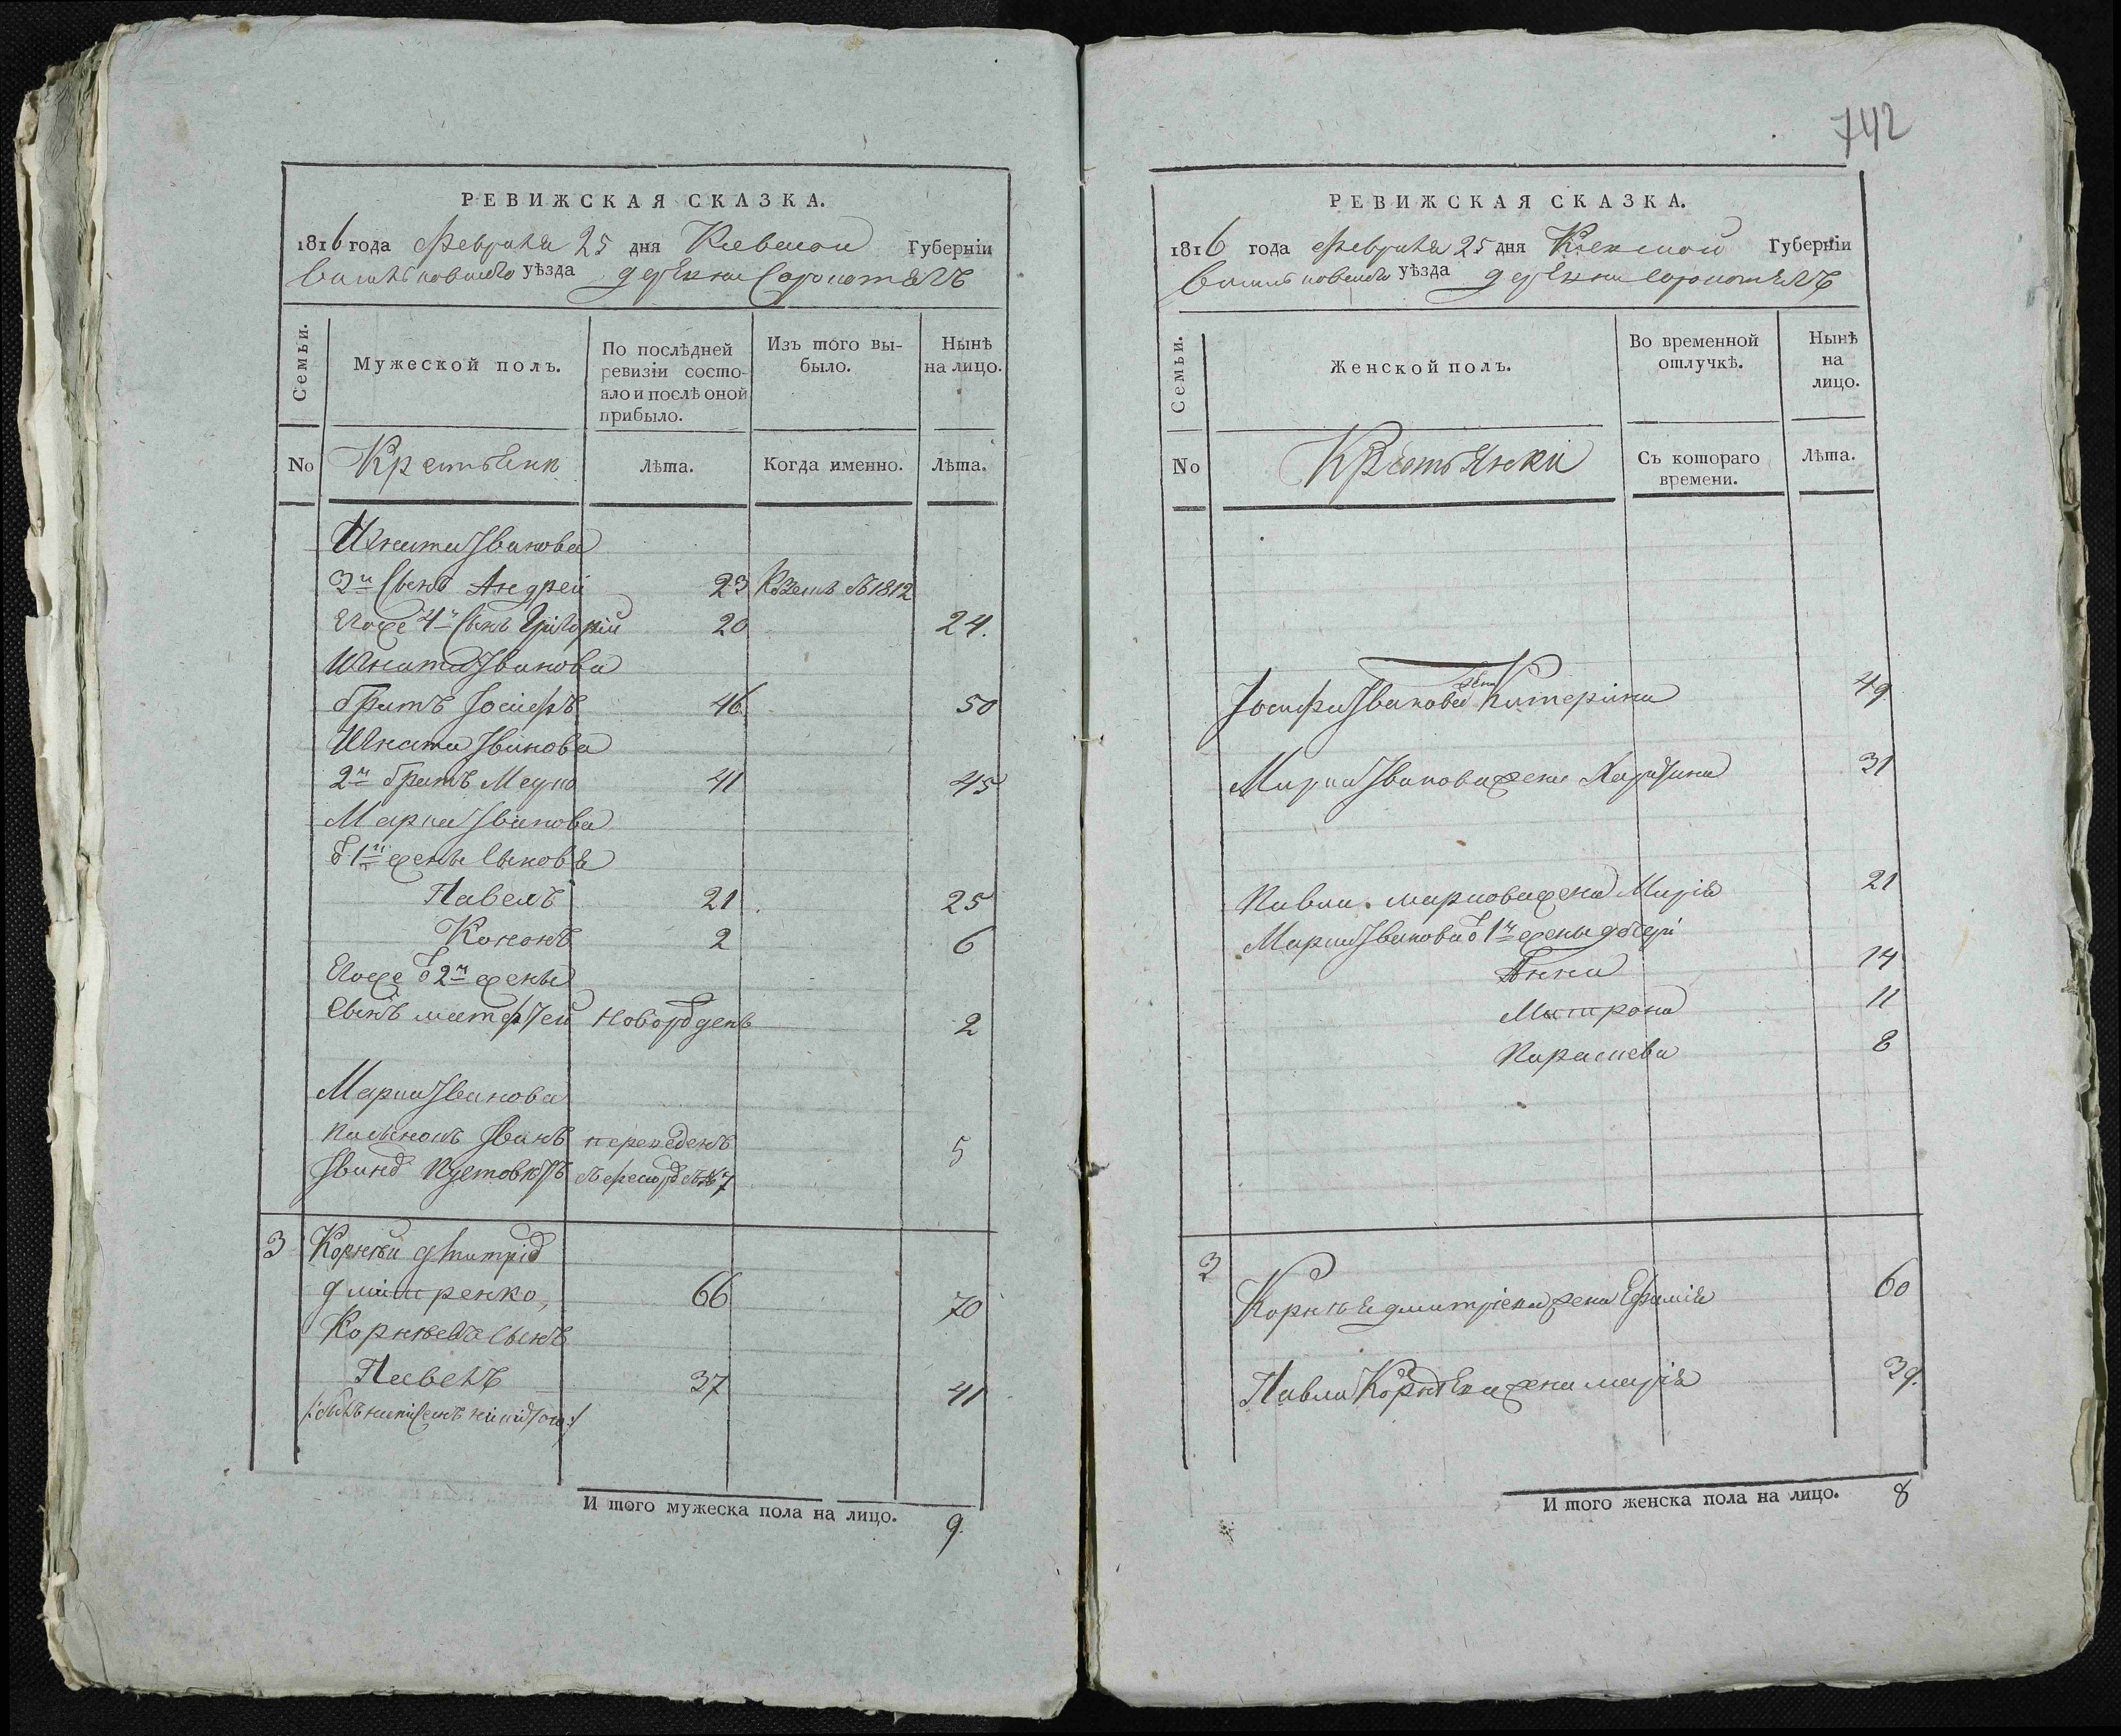 742
РЕВИЖСКАЯ СКАЗКА.
1816 года Февраля 25 дня Киевской Губерніи
Васильковского уѣзда деревни Соропотяхъ
Семьи.
Мужеской полъ.
По послѣдней ревизіи состояло и послѣ оной прибыло.
Изъ того выбыло.
Нынѣ на лицо.
No
Крестьяне
Лѣта.
Когда именно.
Лѣта.
Игната Іванова
3й Сынъ Андрей 23 1812
Егоже 4й Сынъ Григорій 20 24.
Игната Іванова
братъ Іосифъ 46 50
Игната Іванова
2й братъ Марко 41 45
Марка Іванова
б 1й жены Сыновя
Павелъ 21 25
Кононъ 2 6
Егоже б 2й жены
Сынъ матфей новорожденъ 2
Марка Іванова
пасынокъ Іванъ переведенъ 5
Іванъ 7
3 Корнѣй Дмитрід
дмитренко, 66 70
Корнѣева Сынъ
Павелъ 37 41
И того мужеска пола на лицо. 9
РЕВИЖСКАЯ СКАЗКА.
1816 года Февраля 25 дня Киевской Губерніи
Васильковского уѣзда деревни Соропотяхъ
Семьи.
Женской полъ.
Во временной отлучкѣ.
Нынѣ на лицо.
No
Крестьянки
Съ котораго времени.
Лѣта.
Іосифа Іванова жена Катерина 49
Марка Іванова жена 31
Павла маркова жена Марія 21
Марка Іванова б 1й жены дочери
Анна 14
Матрона 11
Параскева 8
3 Корнѣя дмитріева жена Ефимія 60
Павла Корнѣева жена марія 39.
И того женска пола на лицо. 8